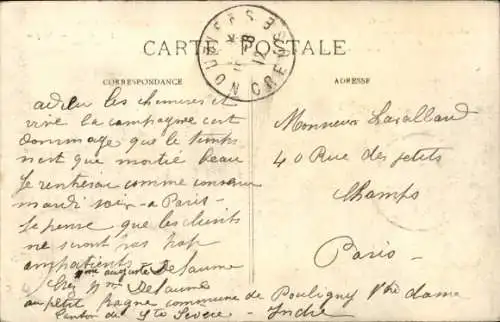 CARTE POSTALE
NOUZIERS CREUSE
CORRESPONDANCE
ADRESSE
adieu les chemises et
vive la campagne cest
dommage que le temps
n'est que moitié beau
Je rentrerai comme convenu
mardi soir - a Paris -
Je pense que les clients
ne seront pas trop
impatients
Mme auguste Delaume
chez Mme Delaume
au petit commune de Pouligny Notre dame
Canton de Ste Severe - Indre
Monsieur Lasalland
40 Rue des petits
Champs
Paris -